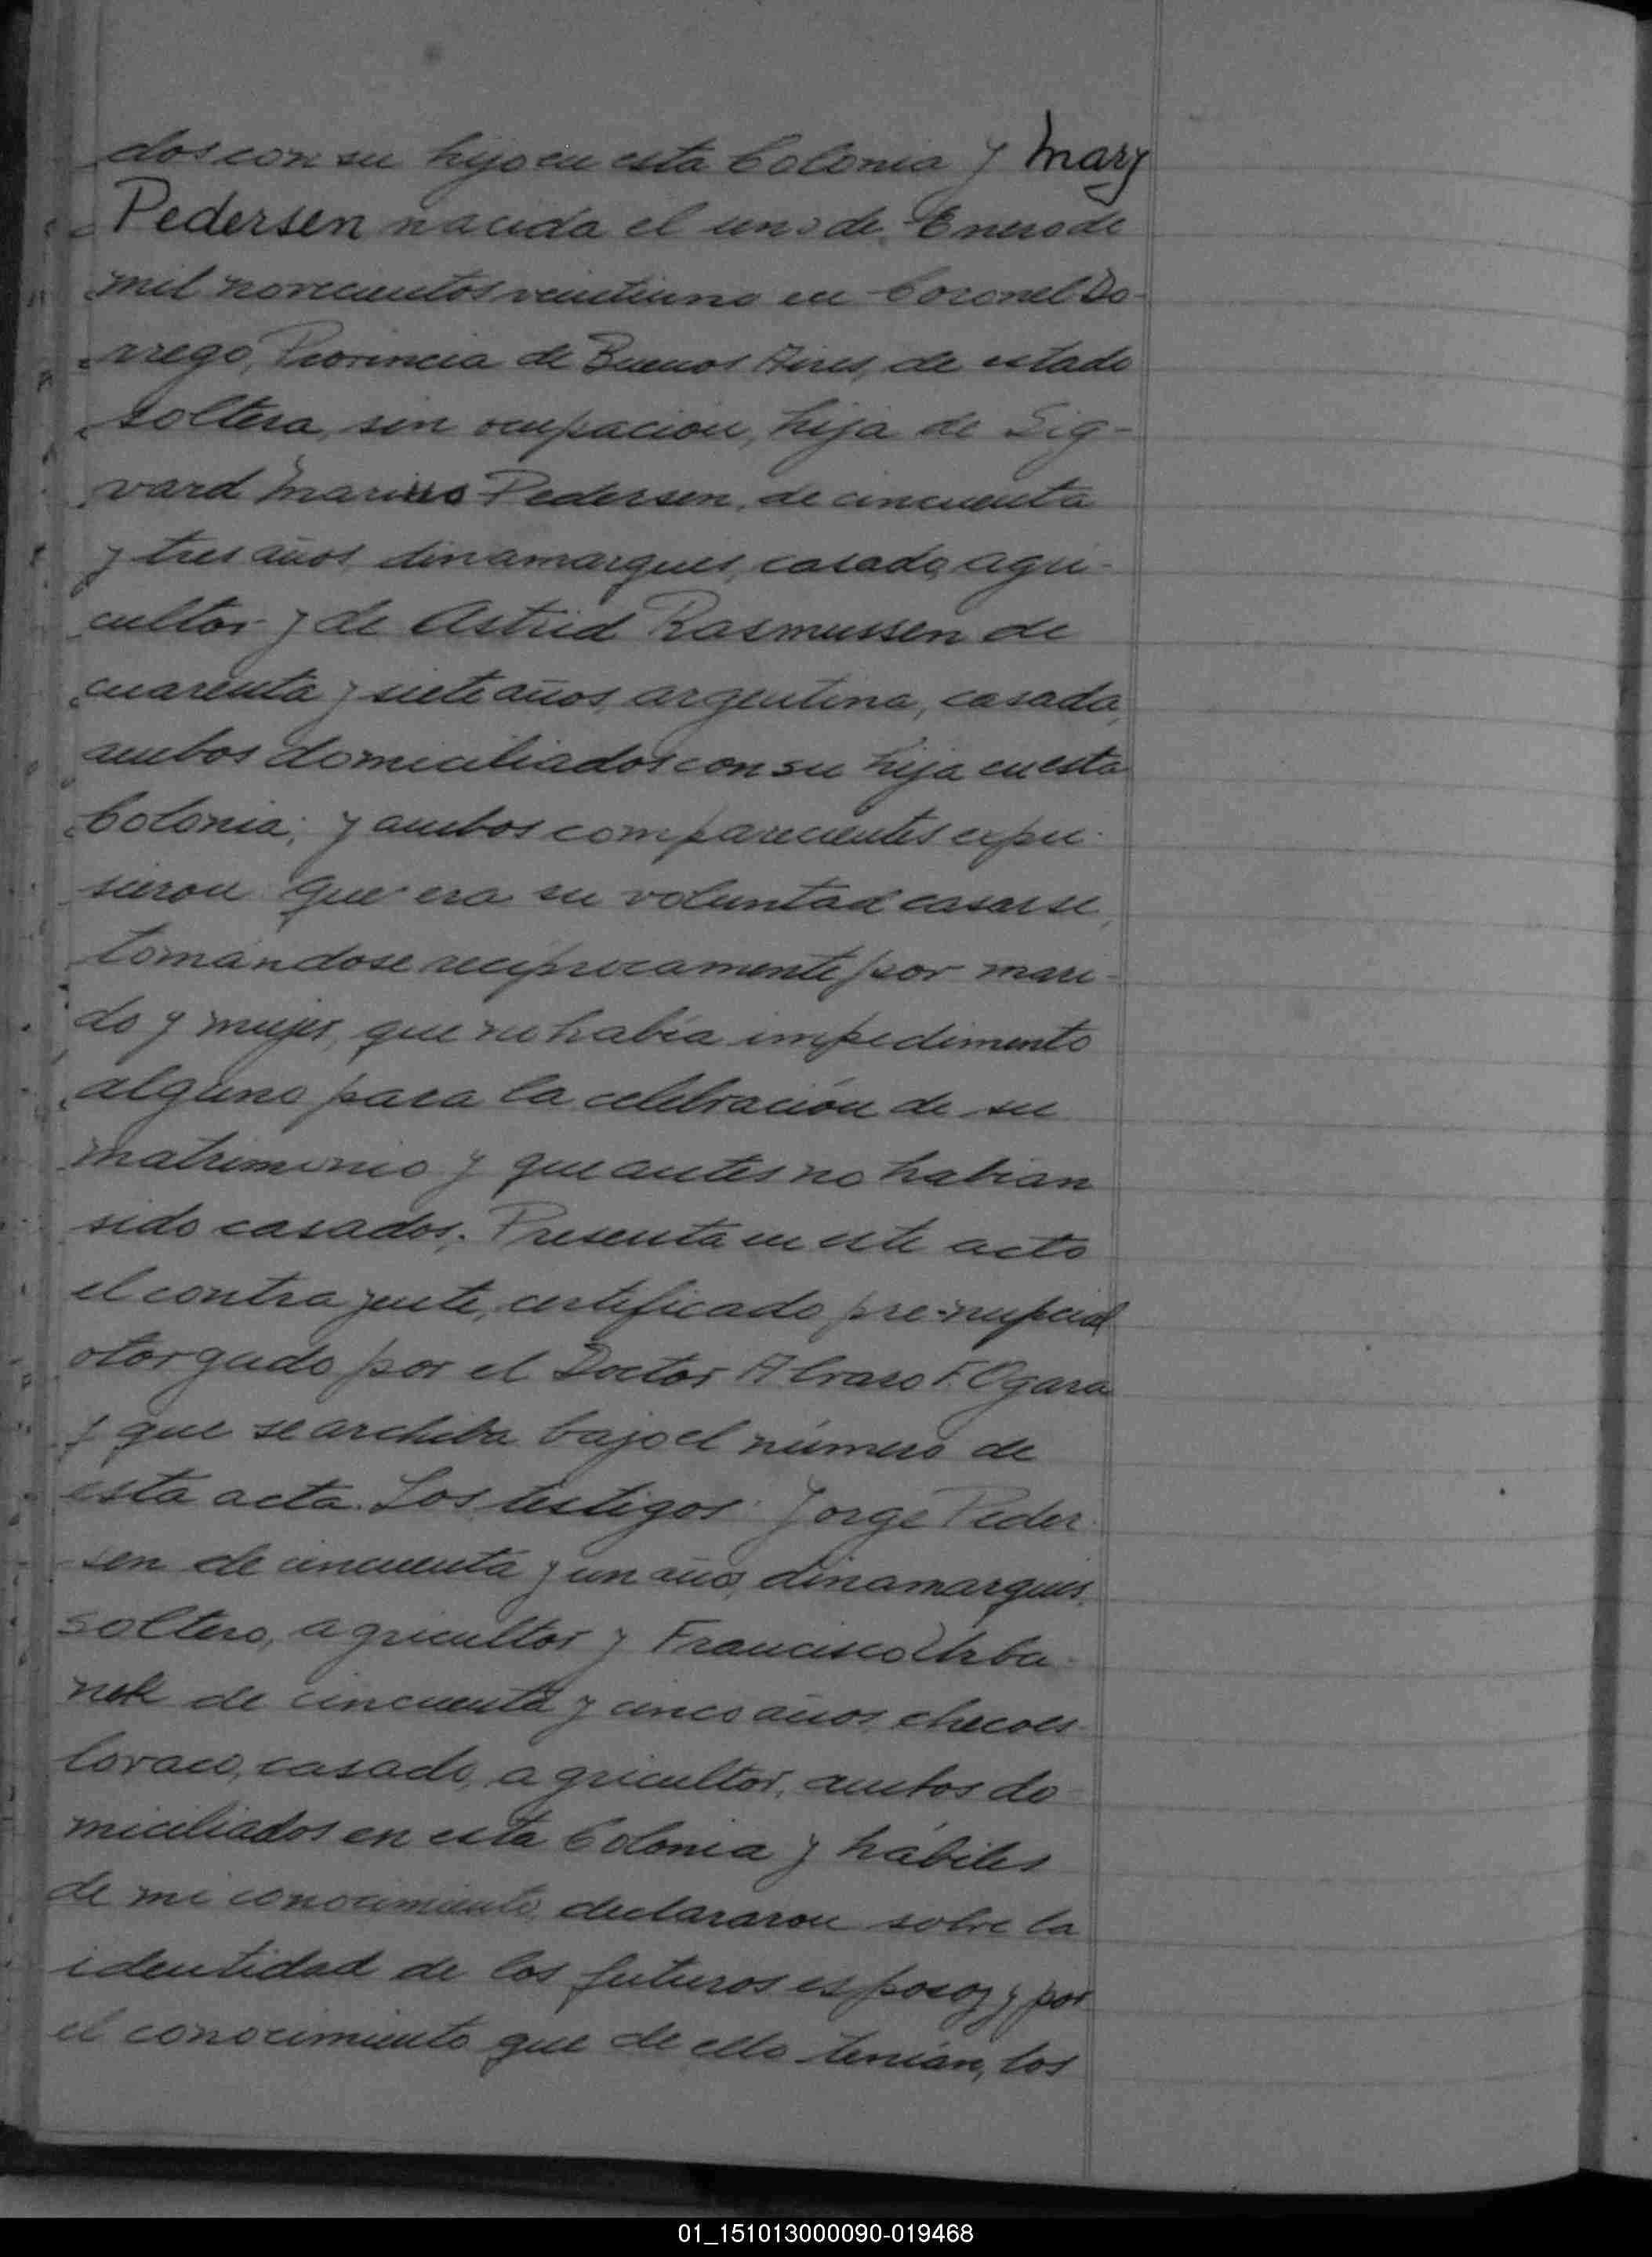 dos con su hijo en esta Colonia y Mary
Pedersen nacida el uno de Enero de
mil novecientos veintiuno en Coronel Do-
rrego, Provincia de Buenos Aires, de estado
soltera, sin ocupación, hija de Sig-
vard Marius Pedersen, de cincuenta
y tres años, dinamarques, casado, agri-
cultor y de Astrid Rasmussen de
cuarenta y siete años, argentina, casada,
ambos domiciliados con su hija en esta
Colonia; y ambos comparecientes expu-
sieron: que era su voluntad casarse,
tomándose recíprocamente por mari-
do y mujer, que no había impedimento
alguno para la celebración de su
matrimonio y que antes no habían
sido casados. Presenta en este acto
el contrayente, certificado pre-nupcial
otorgado por el Doctor Alvaro F. Ogara
y que se archiba bajo el número de
esta acta. Los testigos: Jorge Peder-
sen de cincuenta y un año, dinamarques,
soltero, agricultor y Francisco Urba-
nek de cincuenta y cinco años, checoes-
lovaco, casado, agricultor, ambos do-
miciliados en esta Colonia y hábiles
de mi conocimiento, declararon sobre la
identidad de los futuros esposos y por
el conocimiento que de ello tenían, los
01_151013000090-019468